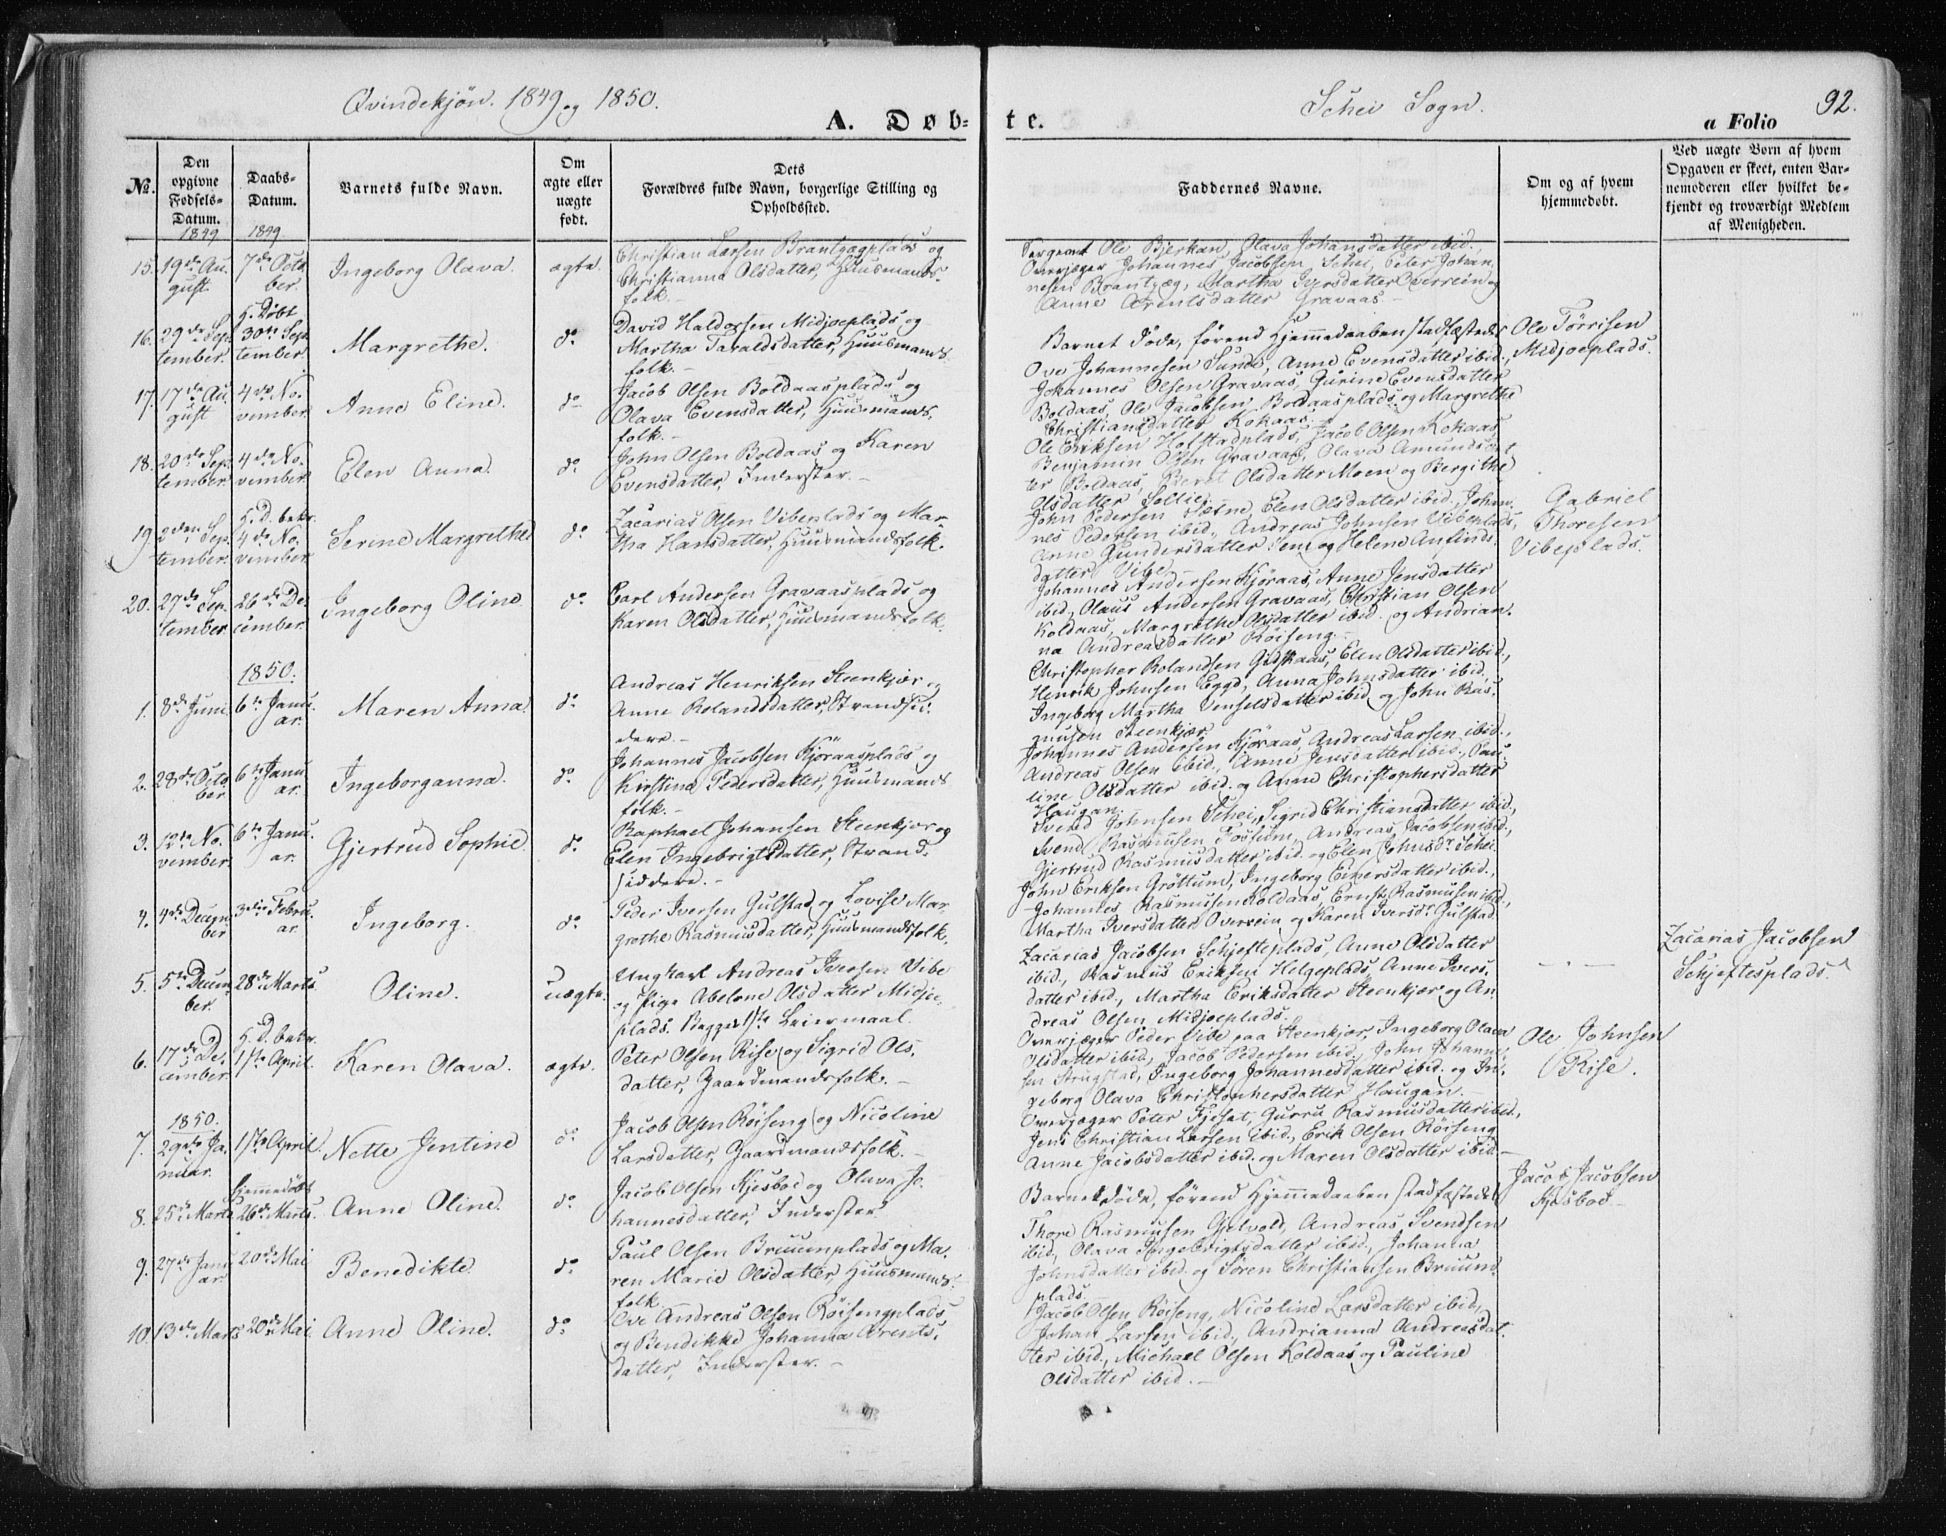 Qvindekjøn. 1849 og 1850.
Schei Sogn.
92.
A. Døb=
te.
a Folio
No.
Den opgivne Fødsels-Datum.
Daabs-Datum.
Barnets fulde Navn.
Om ægte eller uægte født.
Dets Forældres fulde Navn, borgerlige Stilling og Opholdssted.
Faddernes Navne.
Om og af hvem hjemmedøbt.
Ved uægte Børn af hvem Opgaven er skeet, enten Barnemoderen eller hvilket bekjendt og troværdigt Medlem af Menigheden.
1849
1849
15. 19de August. 7de October. Ingeborg Olava. ægte.
Christian Larsen Brantzægplads og
Christianna Olsdatter, Huusmands-
folk.-
Sergeant Ole Bjerkan, Olava Johansdatter ibid.,
Overjæger Johannes Jacobsen Schei, Peter Johan-
nesen Brantzæg, Martha Iversdatter Overrein og
Anne Arentsdatter Gravaas-
16. 29de September. H. Døbt 30te September. Margrethe. do
David Haldorsen Midjoeplads og
Martha Taraldsdatter, Huusmands-
folk.-
Barnet døde, førend Hjemmedaaben stadfæstedes
Ole Tørrisen
Midjoeplads.
17. 17de August 4de November. Anne Eline. do
Jacob Olsen Boldaasplads og
Olava Evensdatter, Huusmands-
folk.-
Ove Johannesen Sunde, Anne Evensdatter ibid.,
Johannes Olsen Gravaas, Gurine Evensdatter
Boldaas, Ole Jacobsen Boldaasplads og Margrethe
Christiansdatter Kokaas.
18. 20de September. 4de November. Elen Anna. do
John Olsen Boldaas og Karen
Evensdatter, Inderster.-
Ole Eriksen Hofstadplads, Jacob Olsen Kokaas
Benjamin Olsen Gravaas, Olava Amundsdat-
ter Boldaas, Beret Olsdatter Moen og Bergithe
Olsdatter
19. 2den September. H. D. bekr. 4de November. Serine Margrethe. do
Zacarias Olsen Vibeplads og Mar-
tha Hansdatter, Huusmandsfolk.
John Pedersen Elen Olsdatter ibid., Johan-
nes Pedersen ibid., Andreas Johnsen Vibeplads,
Anne Gundersdatter og Helene Anfinds-
datter Vibe
Gabriel
Thoresen
Vibeplads.
20. 27de September. 26de December. Ingeborg Oline. do
Carl Andersen Gravaasplads og
Karen Olsdatter, Huusmandsfolk.
Johannes Andersen Kjøraas, Anne Jensdatter
ibid., Olaus Andersen Gravaas, Christian Olsen
Koldaas, Margrethe Olsdatter ibid. og Andrian-
na Andreasdatter Røiseng.-
1850.
1. 8de Juni. 6te Januar. Maren Anna. do
Andreas Henriksen Steenkjær og
Anne Rolandsdatter, Strandsid-
dere.-
Christopher Rolandsen Elen Olsdatter ibid.,
Henrik Johnsen Egge, Anna Johnsdatter ibid.,
Ingeborg Martha Venselsdatter ibid. og John Ras-
musen Steenkjær
2. 28de October. 6te Januar. Ingeborganna. do
Johannes Jacobsen Kjøraasplads og
Kirstine Pedersdatter, Huusmands-
folk.-
Johannes Andersen Kjøraas, Andreas Larsen ibid.,
Andreas Olsen ibid., Anne Jensdatter ibid., Pau-
line Olsdatter ibid. og Anne Christophersdatter
Haugan.
3. 12te November. 6te Januar. Gjertrud Sophie. do
Raphael Johansen Steenkjær og
Elen Ingebrigtsdatter, Strand-
siddere.-
Svend Johnsen Schei, Sigrid Christiansdatter ibid.,
Svend Rasmusen Fossum, Andreas Jacobsen ibid.,
Gjertrud Rasmusdatter ibid. og Elen Johnsdr. Schei
4. 4de December 3die Februar. Ingeborg. do
Peder Iversen Gulstad og Lovise Mar-
grethe Rasmusdatter, Huusmandsfolk.
John Eriksen Grøttum, Ingeborg Einersdatter ibid.,
Johannes Rasmusen Koldaas, Ernst Rasmusen ibid.,
Martha Iversdatter Overrein og Karen Iversdr. Gulstad.
5. 5te December. 28de Marts. Oline. uægte.
Ungkarl Andreas Iversen Vibe
og Pige Abelone Olsdatter Midjoe-
plads. Begges 1ste Leiermaal.
Zacarias Jacobsen Schjefteplads, Anne Olsdatter
ibid., Rasmus Eriksen Helgeplads, Anne Ivers-
datter ibid., Martha Eriksdatter Steenkjær og An-
dreas Olsen Midjoeplads.
Zacarias Jacobsen
Schjeftesplads.
6. 17de December. H. D. bekr. 1ste April. Karen Olava. ægte.
Peter Olsen Rise og Sigrid Ols-
datter, Gaardmandsfolk.-
Overjæger Peder Vibe paa Steenkjær, Ingeborg Olava
Olsdatter ibid., Jacob Pedersen ibid., John Johanne-
sen Strugstad, Ingeborg Johannesdatter ibid. og In-
geborg Olava Christophersdatter Haugan.
Ole Johnsen
Rise.
1850.
7. 29de Januar. 1ste April. Nette Jentine do
Jacob Olsen Røiseng og Nicoline
Larsdatter, Gaardmandsfolk.-
Overjæger Peter Fjeset, Gurru Rasmusdatter ibid.,
Jens Christian Larsen ibid., Erik Olsen Røiseng
Anne Jacobsdatter ibid. og Maren Olsdatter ibid.-
8. 25de Marts Hjemmedøbt 26de Marts. Anne Oline. do
Jacob Olsen Kjesboe og Olava Jo-
hannesdatter, Inderster.
Barnet døde, førend Hjemmedaaben stadfæstedes
Jacob Jacobsen
Kjesboe.-
9. 27de Januar. 20de Mai Benedikte. do
Paul Olsen Bruuemplads og Ma-
ren Marie Olsdatter, Huusmands-
folk
Thore Rasmusen Gjelvold, Andreas Svendsen
ibid., Olava Ingebrigtsdatter ibid., Johanna
Johnsdatter ibid. og Søren Christiansen Bruuem-
plads.
10. 13de Marts 20de Mai. Anne Oline. do
Ove Andreas Olsen Røisengplads
og Bendikke Johanna Arents-
datter, Inderster.-
Jacob Olsen Røiseng, Nicoline Larsdatter ibid.,
Johan Larsen ibid., Andrianna Andreasdat-
ter ibid., Michael Olsen Koldaas og Pauline
Olsdatter ibid.-